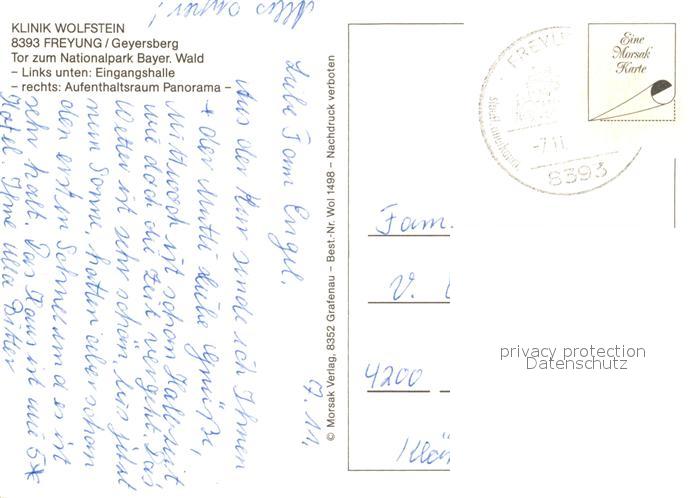 KLINIK WOLFSTEIN
8393 FREYUNG / Geyersberg
Tor zum Nationalpark Bayer. Wald
– Links unten: Eingangshalle
– rechts: Aufenthaltsraum Panorama –
7. 11.
Liebe Fam Engel,
Aus der Kur sende ich Ihnen
+ der Mutti liebe Grüße,
Mittwoch ist schon Halbzeit
und doch die Zeit vergeht. Das
Wetter ist sehr schön bis jetzt
nur Sonne, hatten aber schon
den ersten Schnee und es ist
sehr kalt. Das Haus ist wie 5*
Hotel. Ihre Ulla Ritter
© Morsak Verlag, 8352 Grafenau – Best.-Nr. Wol 1498 – Nachdruck verboten
Eine
Morsak
Karte
-7.11.
8393
Fam.
V.
4200
privacy protection
Datenschutz